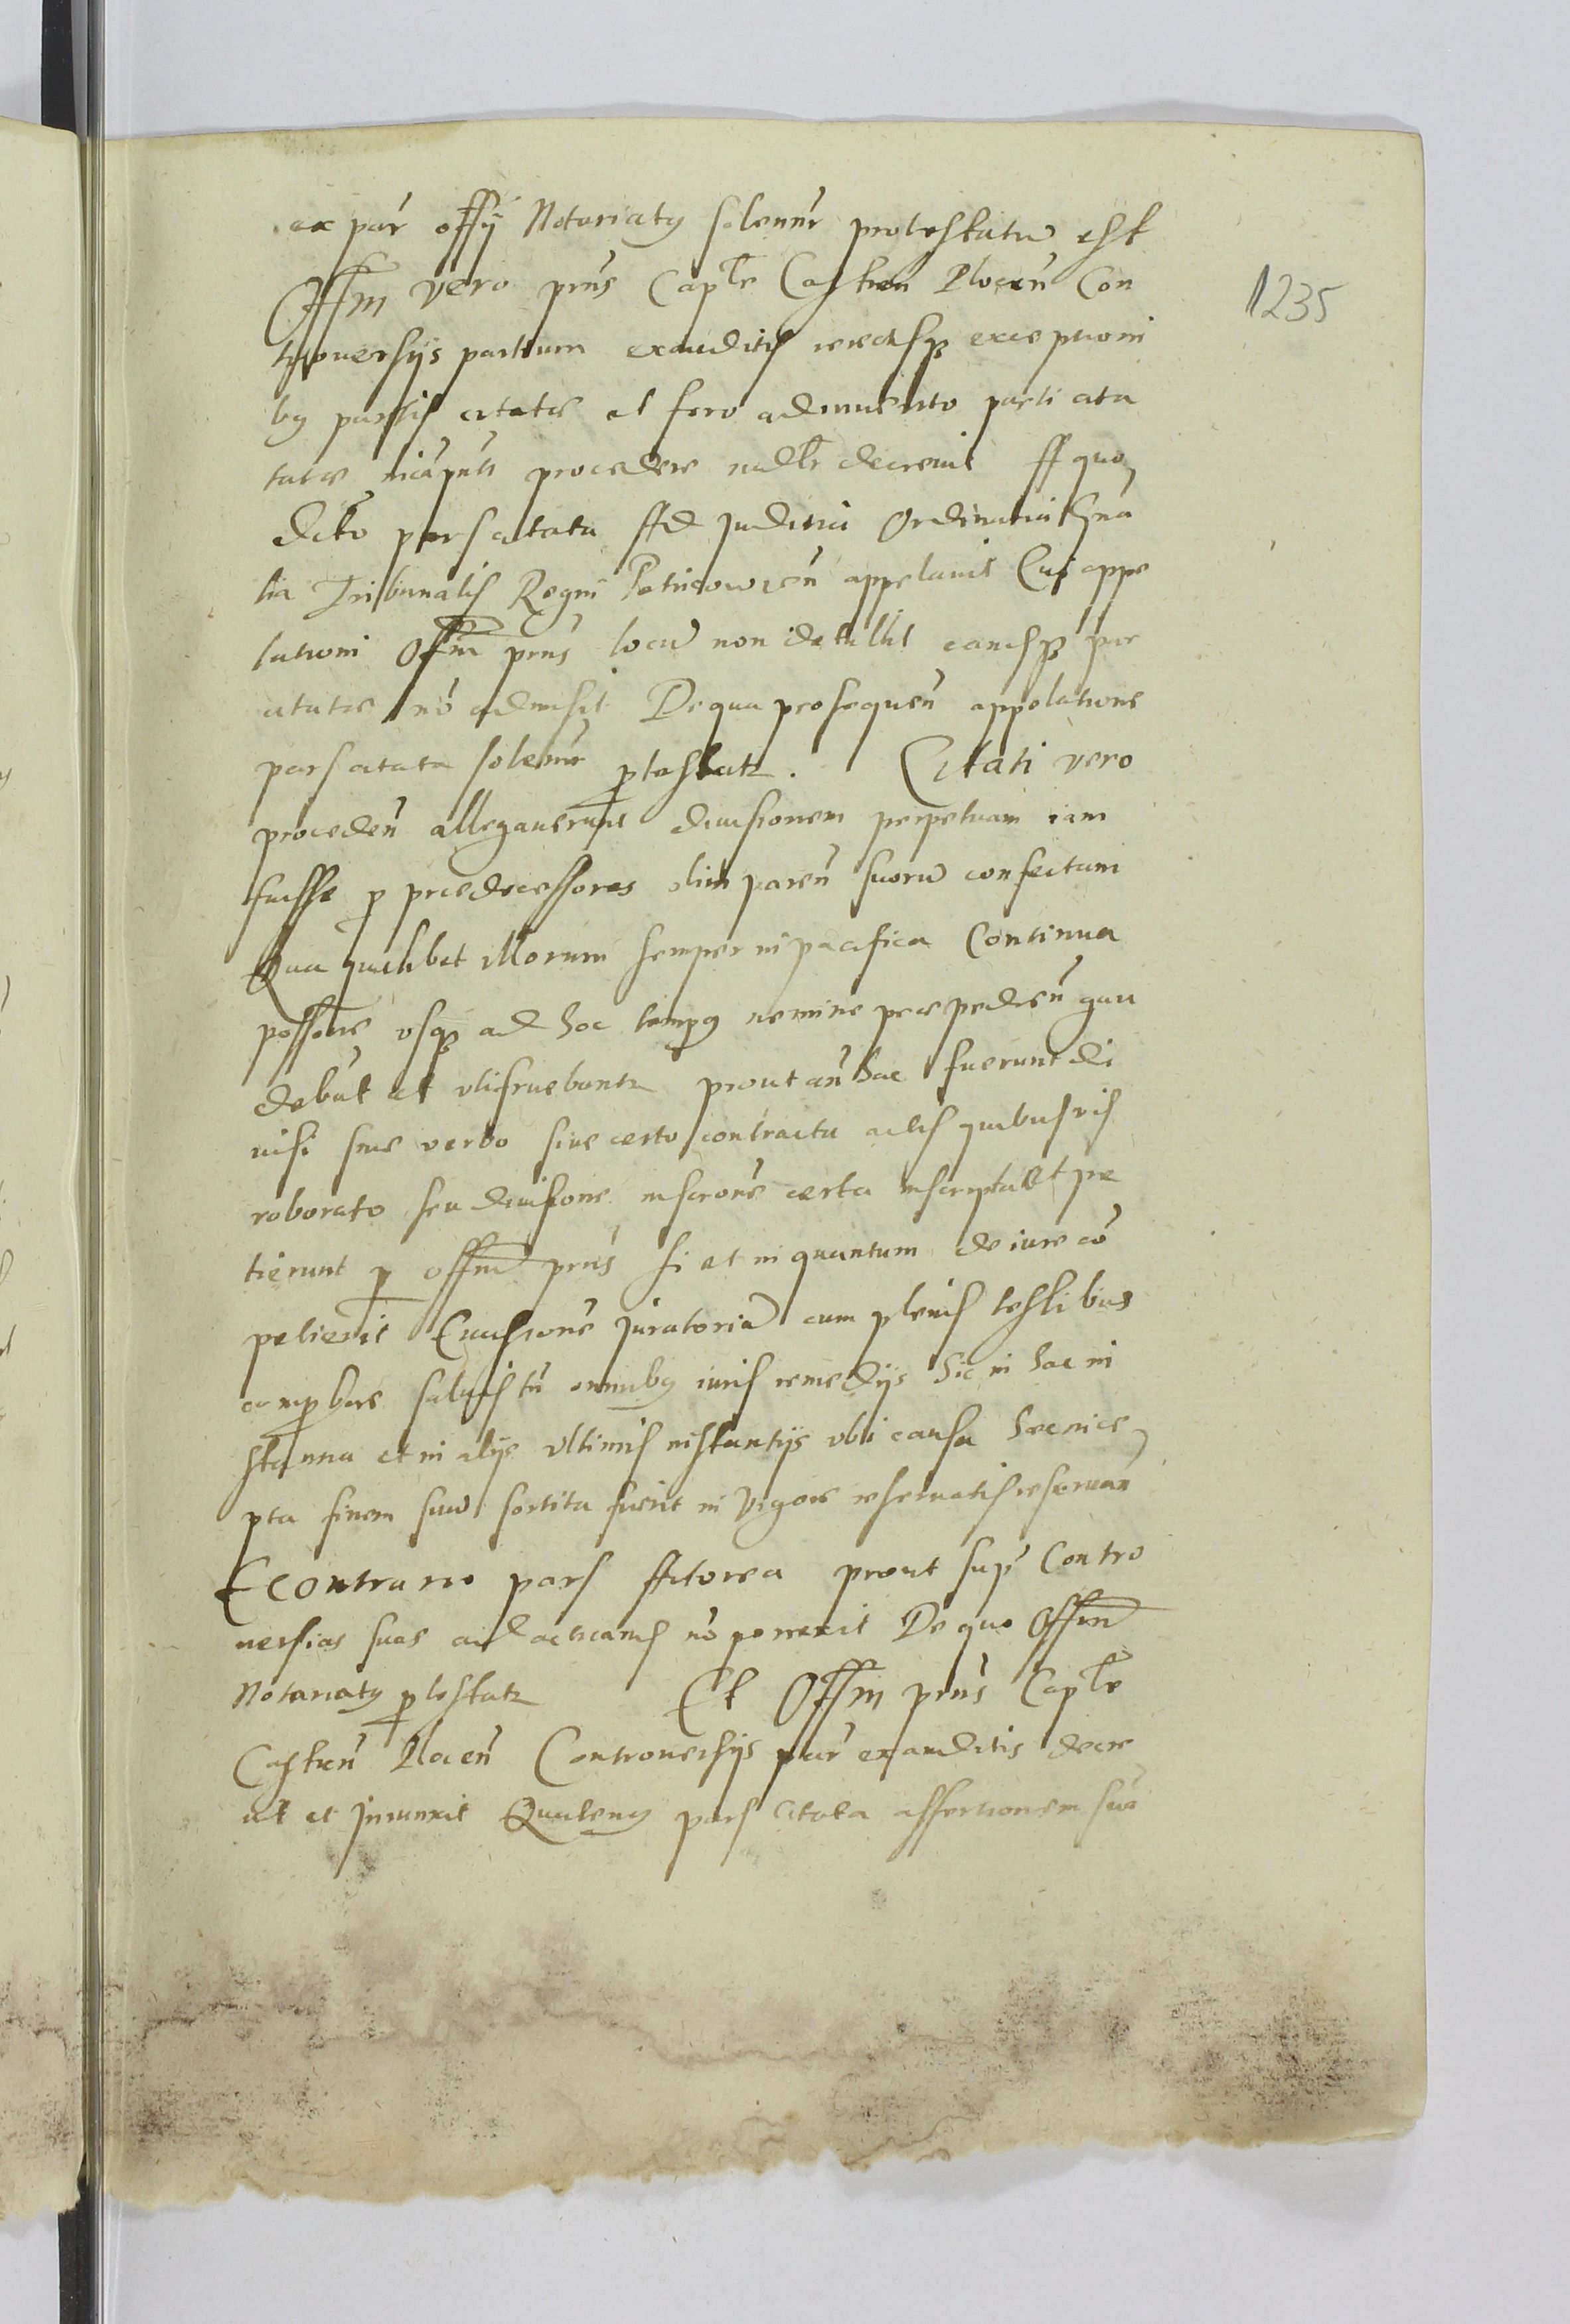 ex par offij Notariatus solenr protestatu est
1235
Offm vero pns Caplr Castren Plocen Con
trouersijs partium exauditis reiectisq exceptioni
bus partis citate et foro adinuento parti cita
tate in capnti procedere nadlr decreuit A quo
dcto pars citata Ad Juditia Ordinaria Gna
lia Tribunalis Regni Petricowien appelauit Cui appe
lationi Offm pns locu non detullit eamsq par
citate no admisit De qua prosequen appelatione
pars citata solenr ptestatr. Citati vero
proceden allegauerunt diuisionem perpetuam iam
fuisse p praedecessores olim paren suoru confectam
Qua quilibet illorum semper in pacifica Continua
possone usq ad hoc tempus nemine praepedien gau
debat et utifruebantr prout an hac fuerunt di
uisi siue verbo siue certo contractu actis quibusuis
roborato seu diuisione inscrone certa inscripta Et pe
tierunt p offm pns si et in quantum de iure co
petierit Euasione Juratoria cum plenis testibus
comprobare saluis tn omnibus iuris remedijs sic in hac in
stantia et in alijs ultimis instantijs ubi causa haec ince
pta finem suu sortita fuerit in vigore reseruatis reseruan
Econtrario pars Actorea prout sup Contro
uersias suas ad acticand no porrexit De quo Offm
Notariatus ptestatr Et Offm pns Caplr
Castren Plocen Controuersijs par exauditis decre
uit et Iniunxit Quatenus pars Citata assertionem sua